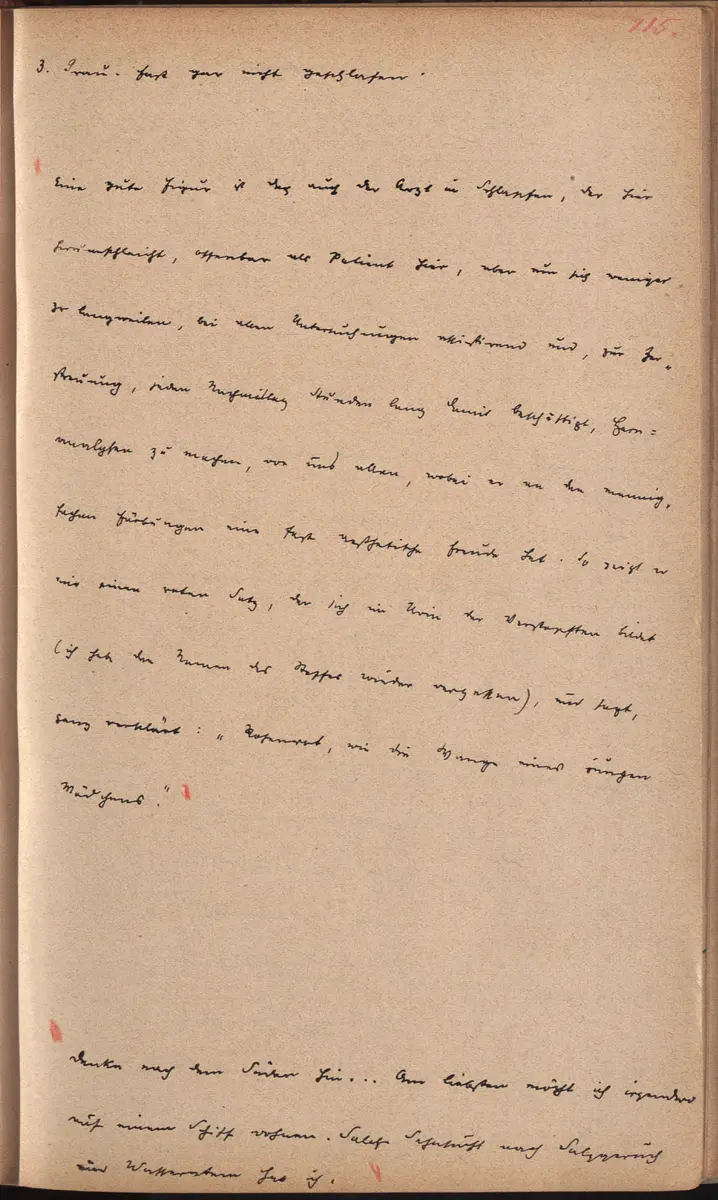 115.
3. Grau. Fast gar nicht geschlafen.
Eine gute Figur ist doch auch der Arzt in Schlapfen, der hier
herumschleicht, offenbar als Patient hier, aber um sich weniger
zu langweilen, bei allen Untersuchungen assistirend und, zur Zer-
streuung, jeden Nachmittag stunden lang damit beschäftigt, Harn=
analysen zu machen, von uns allen, wobei er an den mannig-
fachen Färbungen eine fast aesthetische Freude hat. So zeigt er
mir einen roten Satz, der sich im Urin der Verstopften bildet
(ich habe den Namen des Stoffes wieder vergessen), und sagt,
ganz verklärt: „Rosenrot, wie die Wange eines jungen
Mädchens."
Denke nach dem Süden hin... Am liebsten möcht ich irgendwo
auf einem Schiff wohnen. Solche Sehnsucht nach Salzgeruch
und Wasseratem hab ich.